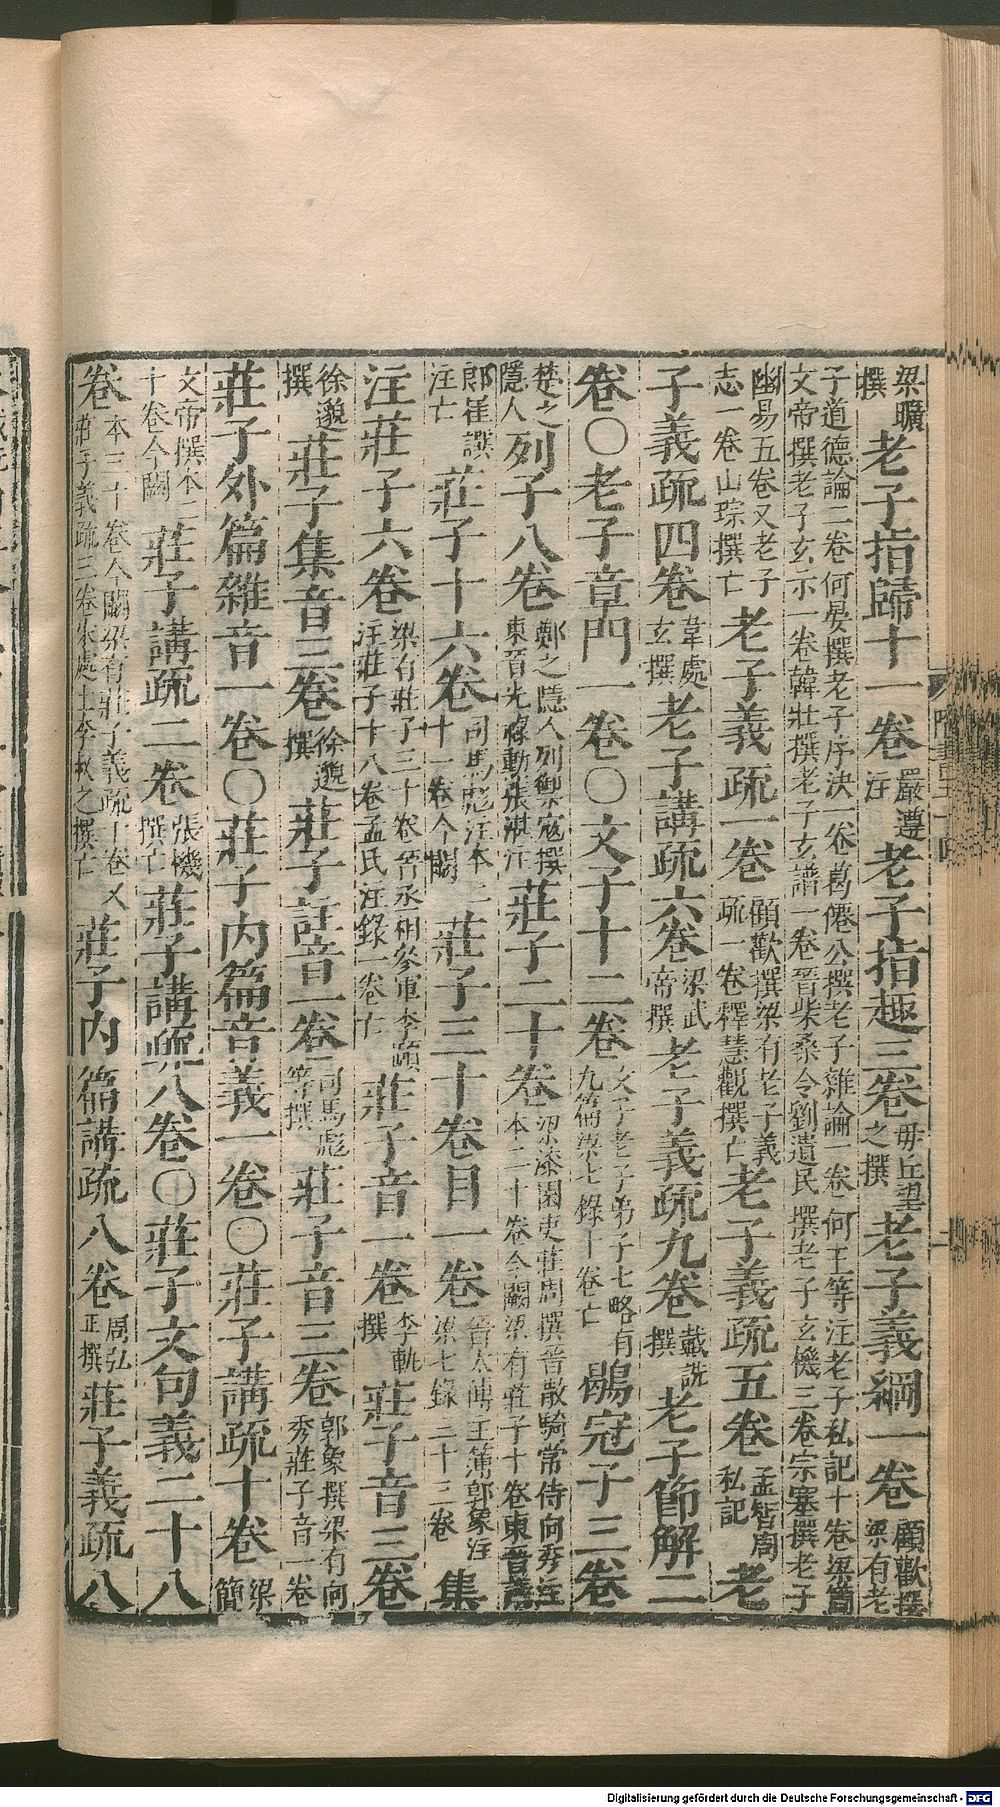 梁曠撰老子指歸十一卷嚴遵注老子指趣三卷毋丘望之撰老子義綱一卷顧歡撰梁有老
子道德論二卷何晏撰老子序決一卷葛僊公撰老子雜論一卷何王等注老子私記十卷梁簡文帝撰老子玄示一卷韓壯撰老子玄譜一卷晉柴桑令劉遺民撰老子玄機三卷宗塞撰老子
幽易五卷又老子志一卷山琮撰亡老子義疏一卷顧歡撰梁有老子義疏一卷釋慧觀撰亡老子義疏五卷孟智周私記老
子義疏四卷韋處玄撰老子講疏六卷梁武帝撰老子義疏九卷戴詵撰老子節解二
卷〇老子章門一卷〇文子十二卷文子老子弟子七略有九篇梁七錄十卷亡鶡冠子三卷
楚之隱人列子八卷鄭之隱人列禦寇撰東晉光祿勳張湛注莊子二十卷梁漆園吏莊周撰晉散騎常侍向秀注本二十卷今闕梁有莊子十卷東晉議
郎崔譔注亡莊子十六卷司馬彪注本二十一卷今闕莊子三十卷目一卷晉太傅主簿郭象注梁七錄三十三卷集
注莊子六卷梁有莊子三十卷晉丞相參軍李頤注莊子十八卷孟氏注錄一卷亡莊子音一卷李軌撰莊子音三卷
徐邈撰莊子集音三卷徐邈撰莊子註音一卷司馬彪等撰莊子音三卷郭象撰梁有向秀莊子音一卷
莊子外篇雜音一卷〇莊子內篇音義一卷〇莊子講疏十卷梁簡
文帝撰本二十卷今闕莊子講疏二卷張機撰亡莊子講疏八卷〇莊子文句義二十八
卷本三十卷今闕梁有莊子義疏十卷又莊子義疏三卷宋處士李叔之撰亡莊子內篇講疏八卷周弘正撰莊子義疏八
Digitalisierung gefördert durch die Deutsche Forschungsgemeinschaft - DFG